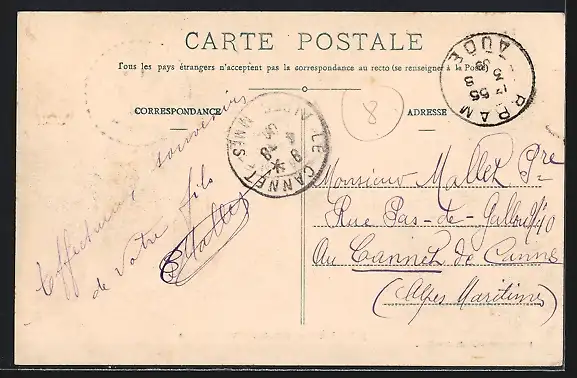 CARTE POSTALE
Tous les pays étrangers n'acceptent pas la correspondance au recto (se renseigner à la Poste)
CORRESPONDANCE
ADRESSE
8
AUDE
LE CANNET
Affectueux souvenirs
de votre fils
Mallet
Monsieur Mallet Pre
Rue Pas-de-
Au Cannet de Cannes
(Alpes Maritimes)